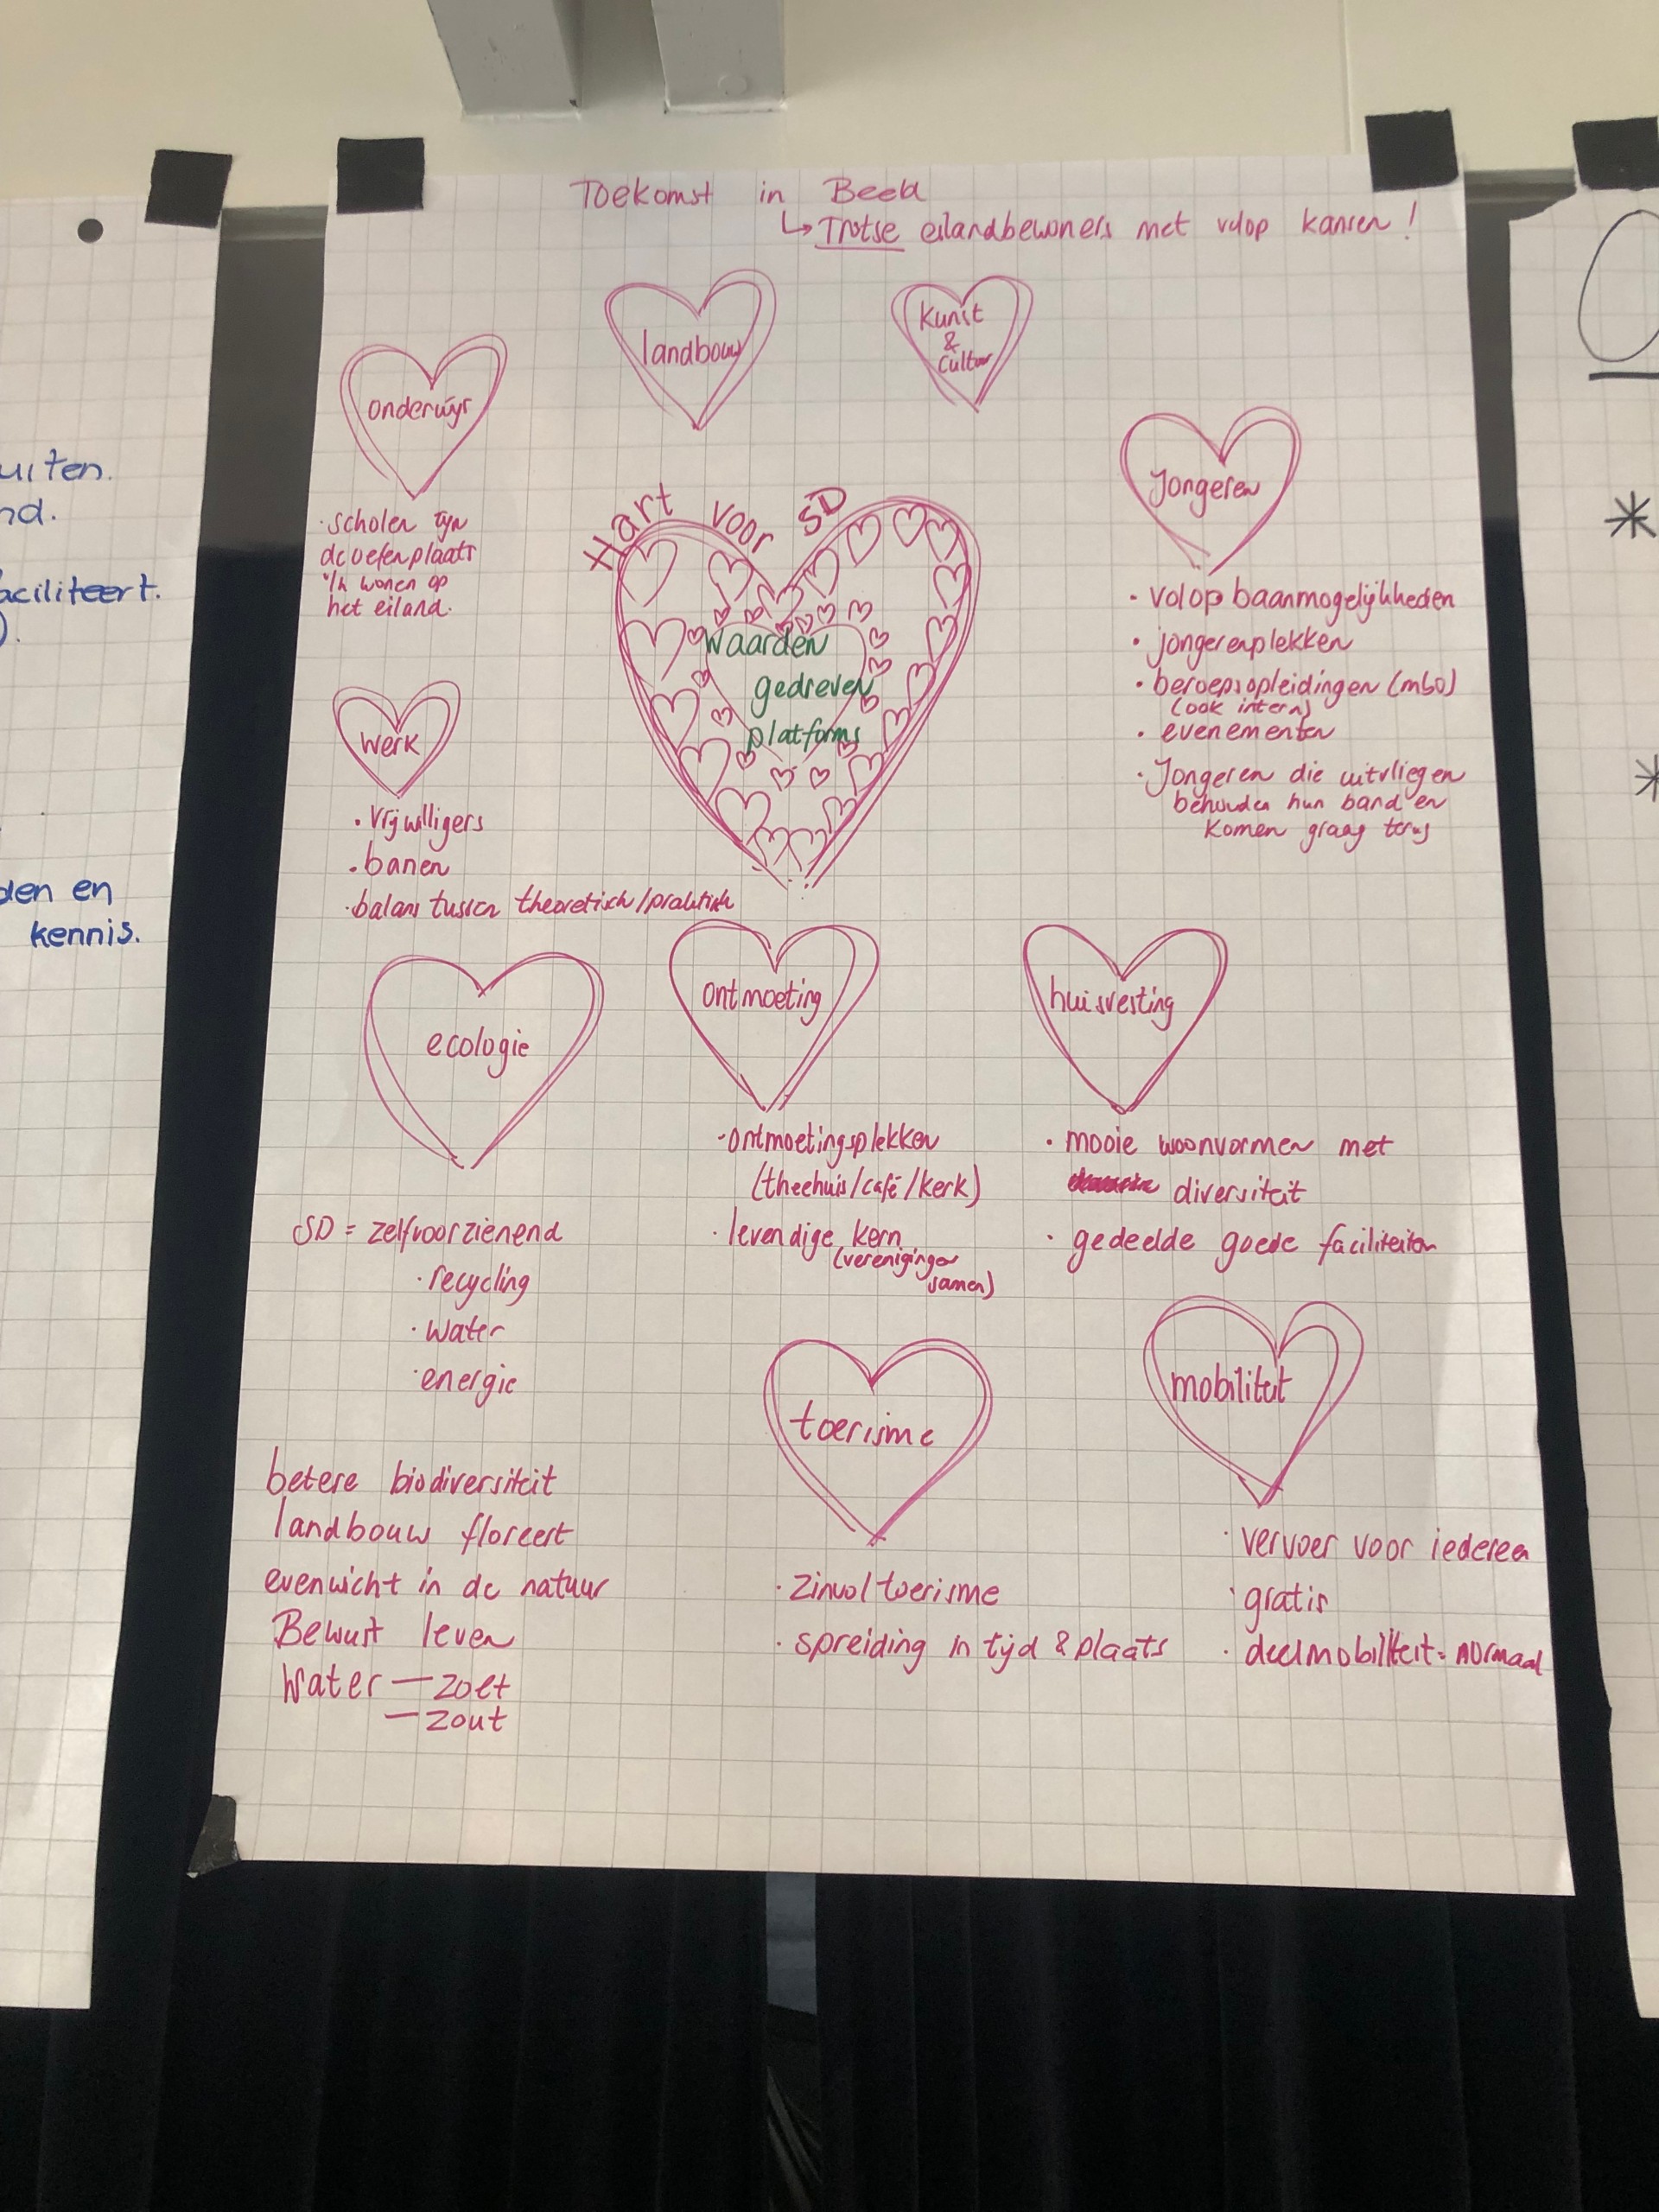 Toekomst in Beeld
↳ Trotse eilandbewoners met volop kansen!
landbouw
kunst
&
Cultuur
onderwijs
· scholen zijn
de oefenplaats
'Ik wonen op
het eiland.
Jongeren
· volop baanmogelijkheden
· jongerenplekken
· beroepsopleidingen (mbo)
(ook intern)
· evenementen
· Jongeren die uitvliegen
behouden hun band en
komen graag terug
Hart voor SD
waarden
gedreven
platforms
werk
· vrijwilligers
· banen
· balans tussen theoretisch/praktisch
ecologie
SD = zelfvoorzienend
· recycling
· water
· energie
betere biodiversiteit
landbouw floreert
evenwicht in de natuur
Bewust leven
Water — zoet
— zout
ontmoeting
· ontmoetingsplekken
(theehuis/café/kerk)
· levendige kern
(verenigingen
samen)
huisvesting
· mooie woonvormen met
diversiteit
· gedeelde goede faciliteiten
toerisme
· zinvol toerisme
· spreiding in tijd & plaats
mobiliteit
· vervoer voor iedereen
· gratis
· deelmobiliteit = normaal
uiten.
nd.
aciliteert.
).
den en
kennis.
*
*